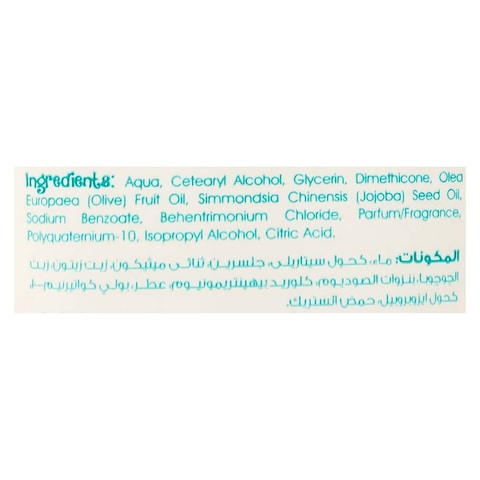 Ingredients: Aqua, Cetearyl Alcohol, Glycerin, Dimethicone, Olea
Europaea (Olive) Fruit Oil, Simmondsia Chinensis (Jojoba) Seed Oil,
Sodium Benzoate, Behentrimonium Chloride, Parfum/Fragrance,
Polyquaternium-10, Isopropyl Alcohol, Citric Acid.
المكونات: ماء، كحول سيتاريلي، جلسرين، ثنائي ميثيكون، زيت زيتون، زيت
الجوجوبا، بنزوات الصوديوم، كلوريد بيهينتريمونيوم، عطر، بولي كواتيرنيم-١٠،
كحول ايزوبروبيل، حمض الستريك.